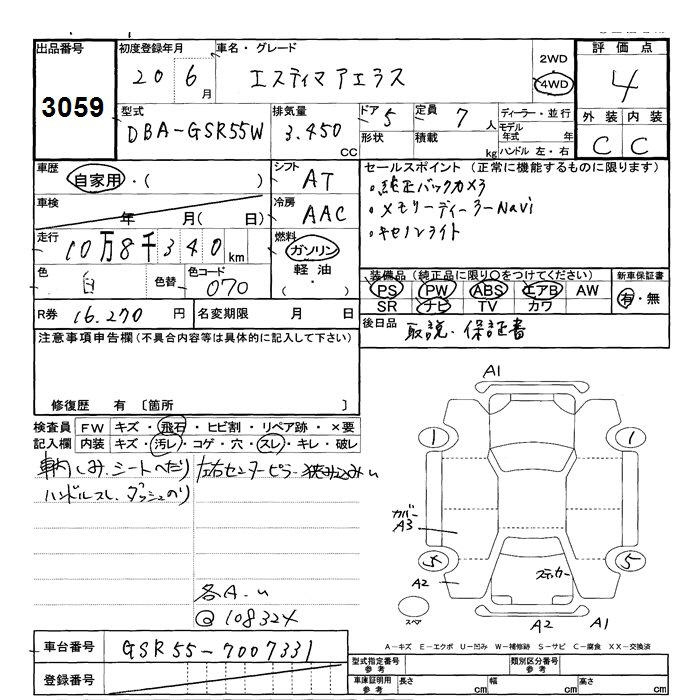 出品番号
3059
初度登録年月
20 6月
車名・グレード
エスティマ アエラス
2WD
4WD
評価点
4
型式
DBA-GSR55W
排気量
3.450 CC
ドア 5
形状
定員 7 人
積載 kg
ディーラー・並行
モデル年式 年
ハンドル 左・右
外装 内装
C C
車歴
自家用・( )
シフト
AT
セールスポイント (正常に機能するものに限ります)
・純正バックカメラ
・メモリーディーラーNavi
・キセノンライト
車検
年 月( 日)
冷房
AAC
走行
10万8千340km
燃料
ガソリン
軽油
( ・ )
色
白
色替
色コード
070
装備品 (純正品に限り○をつけてください)
PS PW ABS エアB AW
SR ナビ TV カワ
新車保証書
有・無
R券 16.270 円
名変期限 月 日
後日品
取説・保証書
注意事項申告欄(不具合内容等は具体的に記入して下さい)
修復歴 有 〔箇所 〕
検査員記入欄
FW キズ・飛石・ヒビ割・リペア跡・×要
内装 キズ・汚レ・コゲ・穴・スレ・キレ・破レ
車内しみ.シートへたり
ハンドルスレ.ダッシュのり
左右センターピラー挟み込みu
各A.u
@108324
A1
1
1
カバー
A3
5
5
A2
ステッカー
スペア
A2
A1
A-キズ E-エクボ U-凹み W-補修跡 S-サビ C-腐食 XX-交換済
車台番号
GSR55-7007331
登録番号
型式指定番号
参考
類別区分番号
参考
車庫証明用
参考
長さ cm
幅 cm
高さ cm